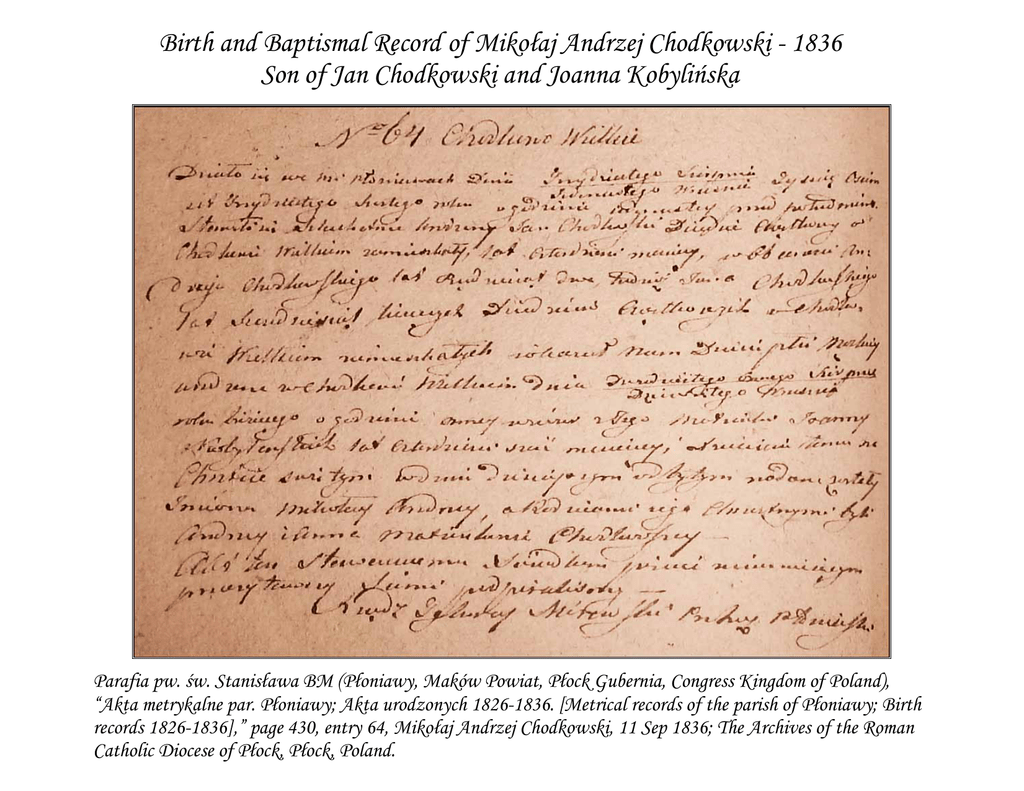 Birth and Baptismal Record of Mikołaj Andrzej Chodkowski - 1836
Son of Jan Chodkowski and Joanna Kobylińska
No 64 Chodkowo Wielkie
Działo się we wsi Płoniawach Dnia Trzydziestego Sierpnia Tysiąc Osim
Jedenastego Września
set Trzydziestego Szostego roku o godzinie przed południem
Jan Chodkowski Dziedzic Cząstkowy w
Chodkowie Wielkim zamieszkały, lat w obecności An
drzeja Chodkowskiego lat dwa, tudzież Jana Chodkowskiego
lat liczących Dziedziców w Chodko
wie Wielkim zamieszkałych i okazał Nam Dziecie płci Męzkiej
urodzone w Chodkowie Wielkim dnia Dwudziestego Sierpnia
Dziewiątego Września
roku bieżącego o godzinie z Jego Małżonki Joanny
Kobylińskich lat Dziecięciu temu na
Chrzcie świętym w dniu dzisiejszym odbytym nadane zostały
Imiona Mikołay Andrzey, a Rodzicami jego Chrzestnymi byli
Andrzey i Anna Małżonkowie Chodkowscy
Akt ten Stawaiącemu i Świadkom
przeczytawszy podpisaliśmy
Xiądz
Parafia pw. św. Stanisława BM (Płoniawy, Maków Powiat, Płock Gubernia, Congress Kingdom of Poland),
“Akta metrykalne par. Płoniawy; Akta urodzonych 1826-1836. [Metrical records of the parish of Płoniawy; Birth
records 1826-1836],” page 430, entry 64, Mikołaj Andrzej Chodkowski, 11 Sep 1836; The Archives of the Roman
Catholic Diocese of Płock, Płock, Poland.